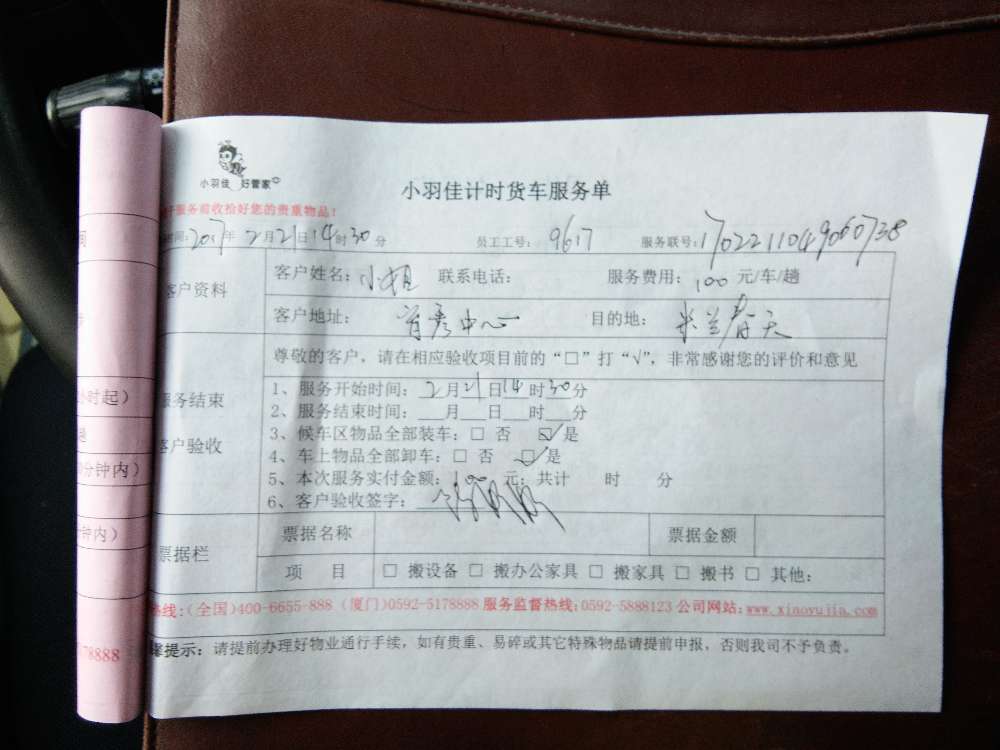 小羽佳 好管家
小羽佳计时货车服务单
服务前收拾好您的贵重物品!
间:2017年2月21日14时30分 员工工号: 9617 服务联号:1702211049060738
客户资料 客户姓名:小姐 联系电话: 服务费用:100 元/车/趟
客户地址: 首秀中心 目的地: 米兰春天
尊敬的客户,请在相应验收项目前的“□”打“√”,非常感谢您的评价和意见
服务结束
客户验收
1、服务开始时间:2月21日14时30分
2、服务结束时间:__月__日__时__分
3、候车区物品全部装车:□ 否 ☑是
4、车上物品全部卸车:□ 否 ☑是
5、本次服务实付金额:100元;共计 时 分
6、客户验收签字:
票据栏 票据名称 票据金额
项 目 □ 搬设备 □ 搬办公家具 □ 搬家具 □ 搬书 □ 其他:
热线:(全国)400-6655-888 (厦门)0592-5178888 服务监督热线:0592-5888123 公司网站:www.xiaoyujia.com
提示:请提前办理好物业通行手续,如有贵重、易碎或其它特殊物品请提前申报,否则我司不予负责。
间
小时起)
分钟内)
钟内)
78888